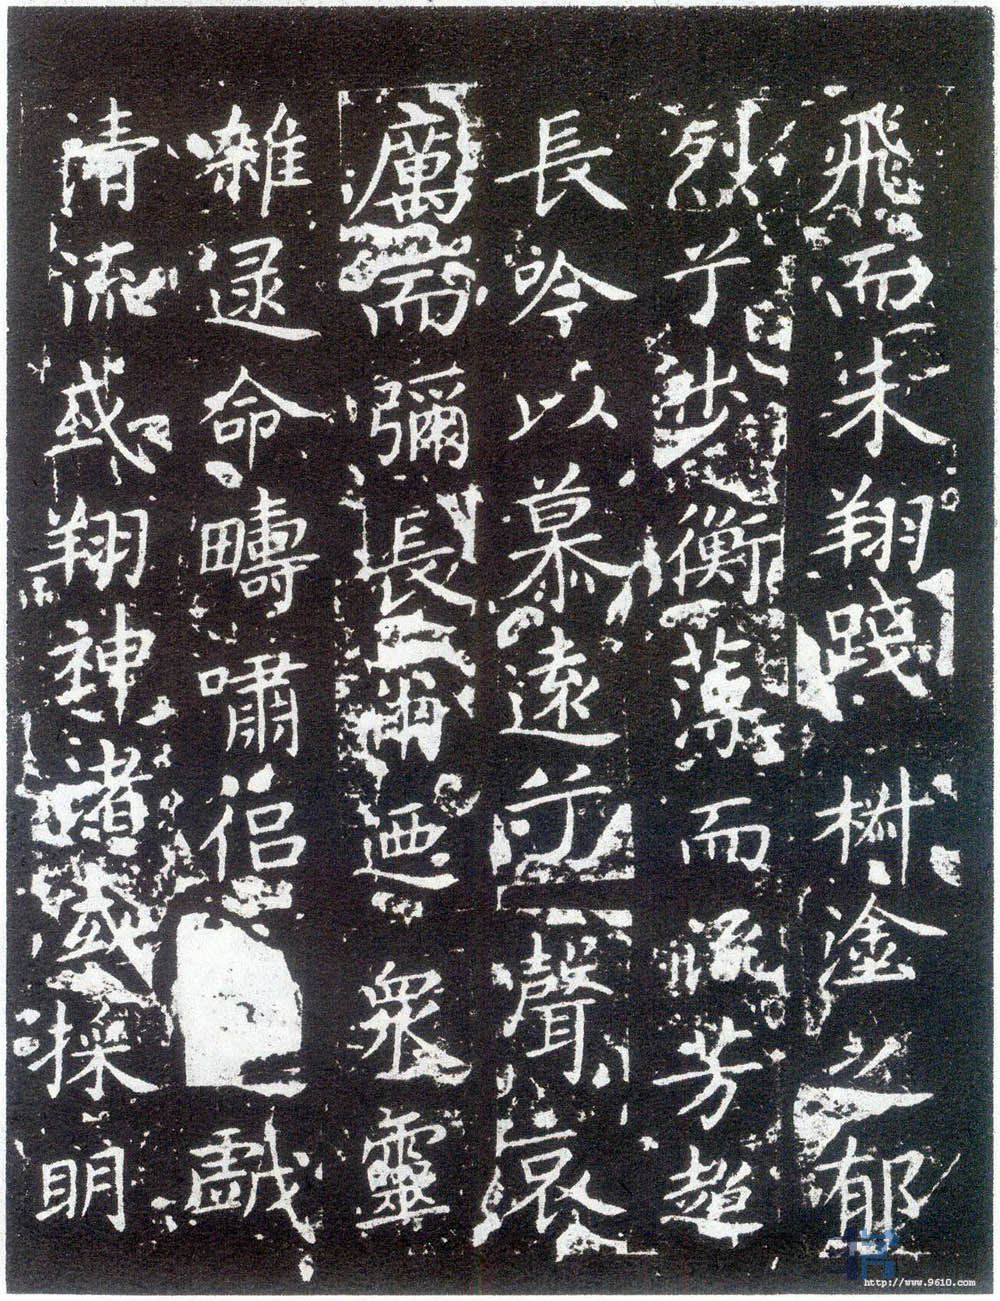 飛而未翔踐椒塗之郁
烈兮步衡薄而流芳超
長吟以慕遠兮聲哀
厲而彌長爾迺眾靈
雜遝命疇嘯侶戲
清流或翔神渚或採明
http://www.9610.com